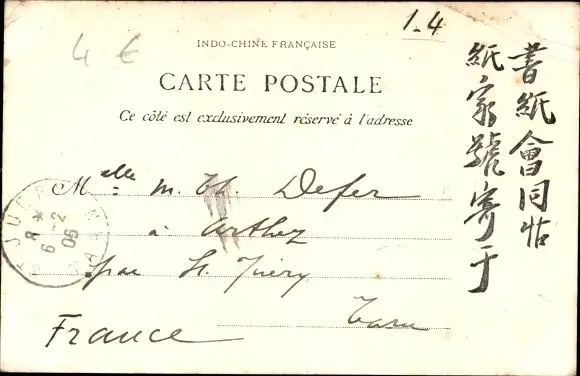 4 €
1.4
INDO-CHINE FRANÇAISE
CARTE POSTALE
Ce côté est exclusivement réservé à l'adresse
Melle M. Th. Defer
à Arthez
par St. Juéry
Tarn
France
書紙會同帖
紙家號寄于
ST JUERY
8 *
6 -2
06
TARN